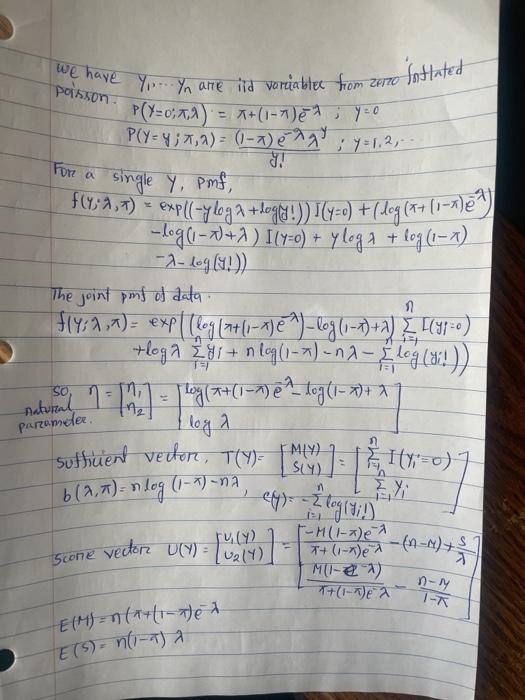 we have Y₁,... Yn are iid variables from zero inflated
poisson.
P(Y=0; π,λ) = π+(1-π)e^-λ ; y=0
P(Y=y; π,λ) = (1-π) e^-λ λ^y / y! ; y=1,2,...
For a single Y, pmf,
f(y; λ, π) = exp((-y log λ + log(y!)) I(y=0) + (log(π+(1-π)e^-λ)
-log(1-π)+λ) I(y=0) + y log λ + log(1-π)
-λ - log(y!))
The joint pmf of data.
f(y; λ, π) = exp((log(π+(1-π)e^-λ) - log(1-π)+λ) Σ_{i=1}^n I(yi=0)
+ log λ Σ_{i=1}^n yi + n log(1-π) - nλ - Σ_{i=1}^n log(yi!))
so, natural parameter. η = [η₁ η₂] = [log(π+(1-π)e^-λ - log(1-π)+λ
log λ]
sufficient vector, T(Y) = [M(Y) S(Y)] = [Σ_{i=1}^n I(Yi=0)
Σ_{i=1}^n Yi]
b(λ,π) = n log(1-π) - nλ, c(y) = -Σ_{i=1}^n log(yi!)
score vector U(Y) = [U₁(Y) U₂(Y)] = [-M(1-π)e^-λ / π+(1-π)e^-λ - (n-M) + S/λ
M(1-e^-λ) / π+(1-π)e^-λ - n-M / 1-π]
E(M) = n(π+(1-π)e^-λ
E(S) = n(1-π) λ